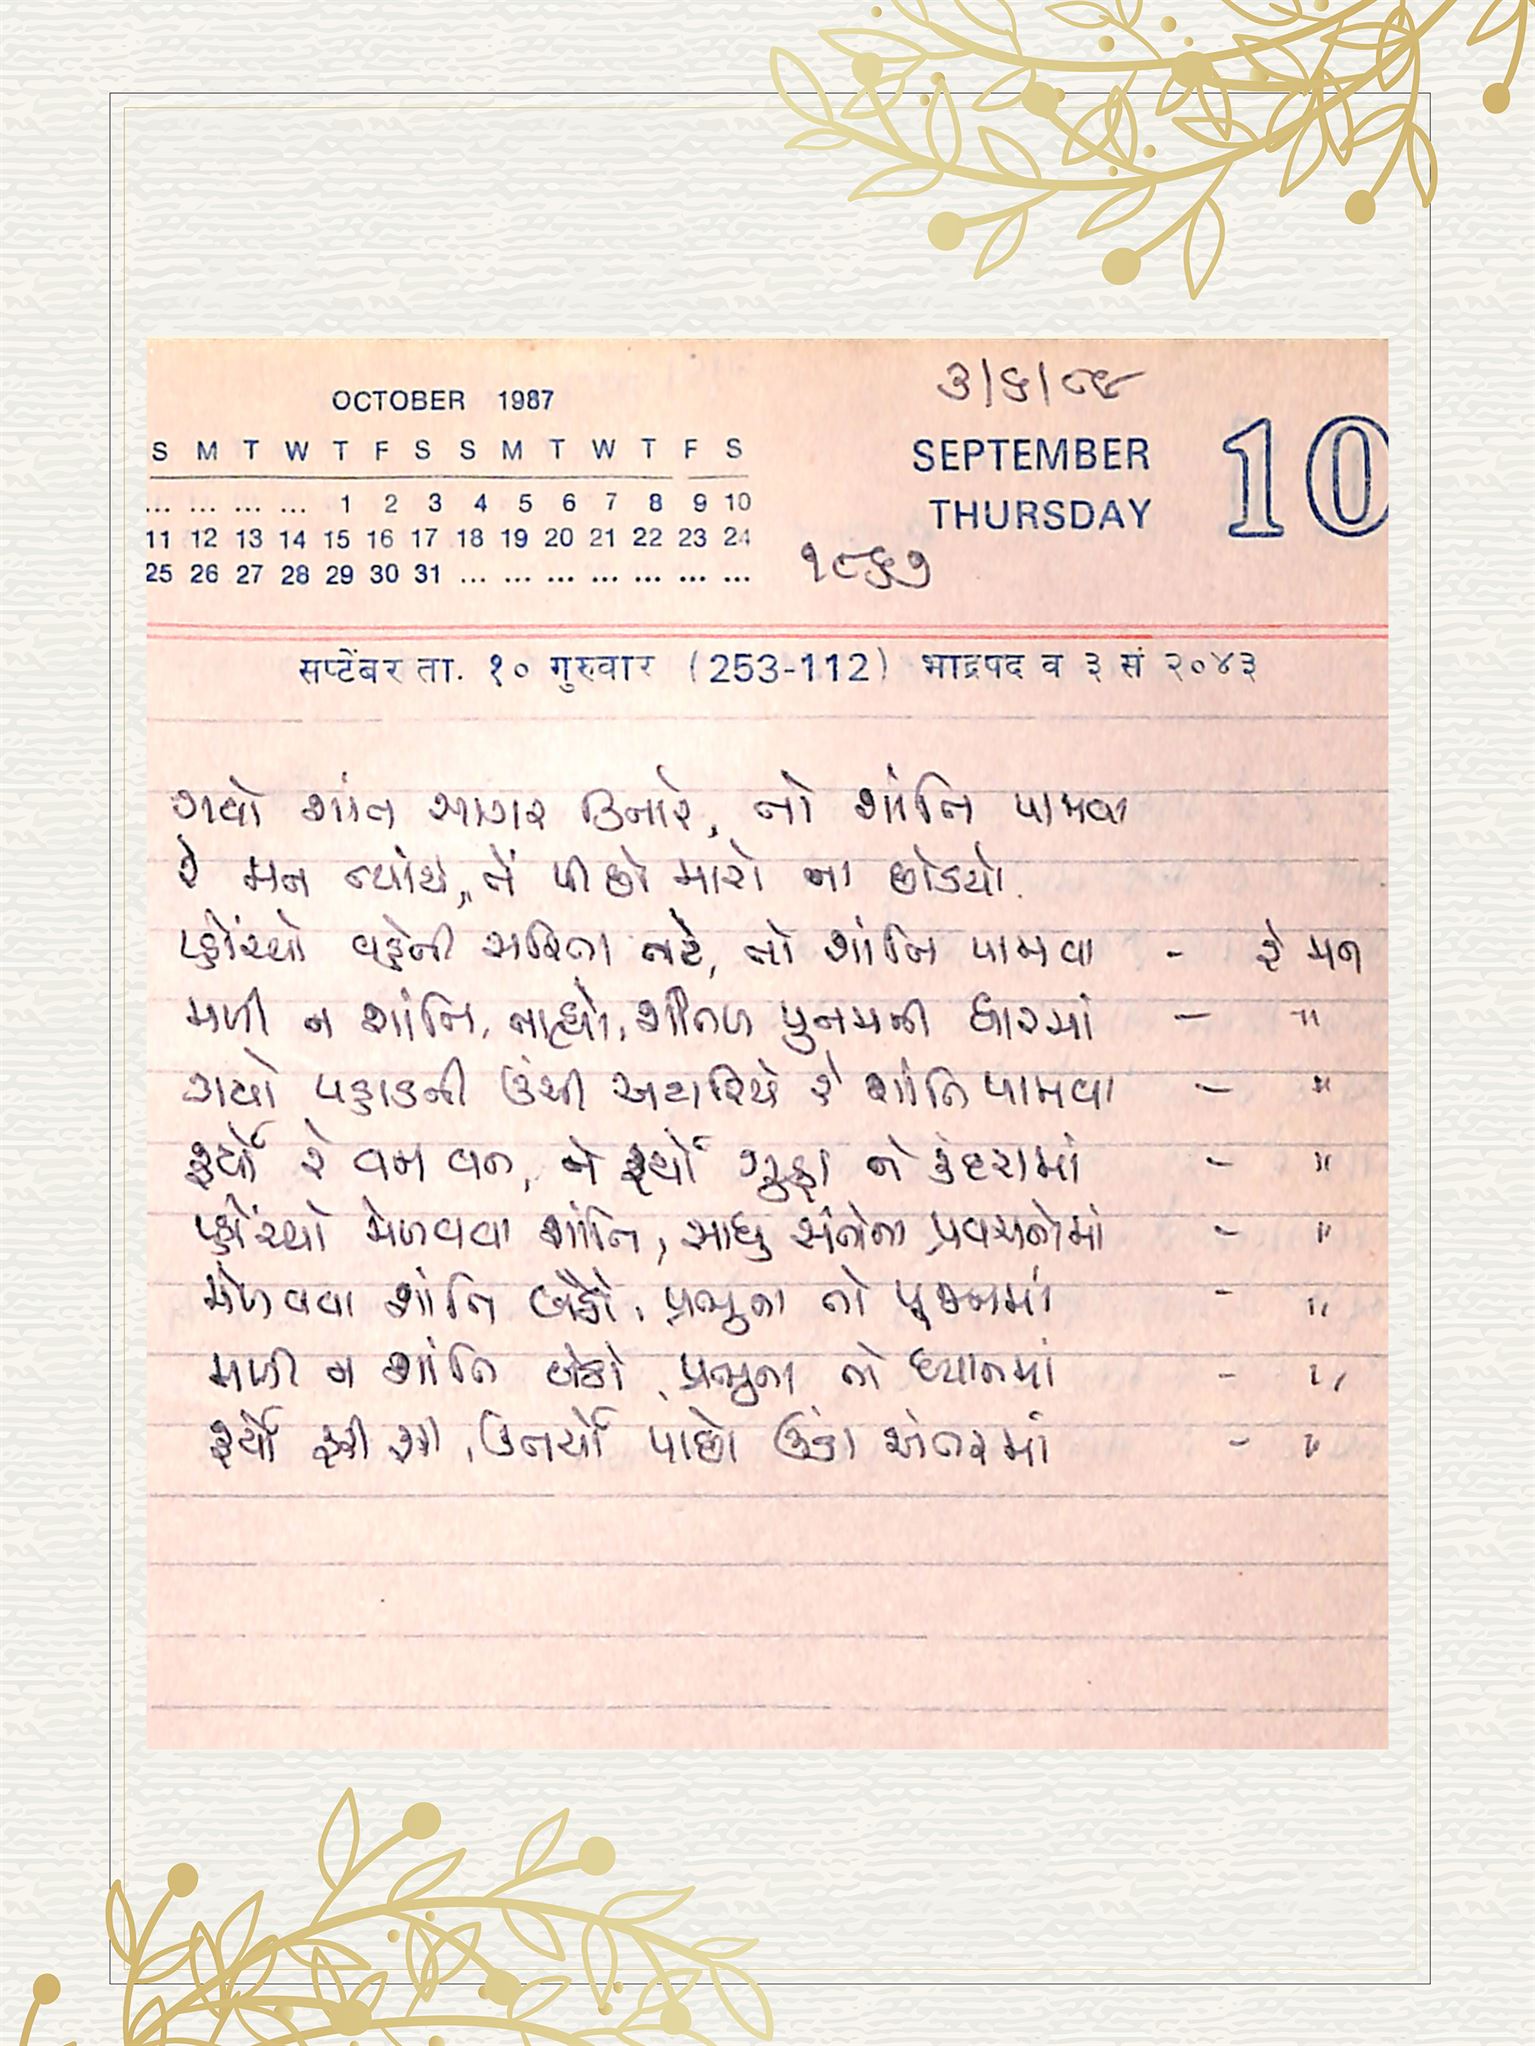 OCTOBER 1987
S M T W T F S S M T W T F S
... ... ... ... 1 2 3 4 5 6 7 8 9 10
11 12 13 14 15 16 17 18 19 20 21 22 23 24
25 26 27 28 29 30 31 ... ... ... ... ... ... ...
૩/૬/૯૮
SEPTEMBER
THURSDAY
10
૧૯૬૭
सप्टेंबर ता. १० गुरुवार (253-112) भाद्रपद व ३ सं २०४३
ગયો શાંત સાગર કિનારે, તો શાંતિ પામવા
રે મન ત્યાંયે, તેં પીછો મારો ના છોડયો.
પ્હોંચ્યો વહેતી સરિતા તટે, તો શાંતિ પામવા - રે મન
મળી ન શાંતિ, નાહ્યો, શીતળ પુનમની ધારમાં - "
ગયો પહાડની ઉંચી અટારિયે રે શાંતિ પામવા - "
ફર્યો રે વન વન, ને ફર્યો ગુફા ને કંદરામાં - "
પ્હોંચ્યો મેળવવા શાંતિ, સાધુ સંતોના પ્રવચનોમાં - "
મેળવવા શાંતિ બેઠો, પ્રભુના તો પૂજનમાં - "
મળી ન શાંતિ બેઠો, પ્રભુના તો ધ્યાનમાં - "
ફર્યો ફરી ફરી, ઉતર્યો પાછો ઉંડા અંતરમાં - "